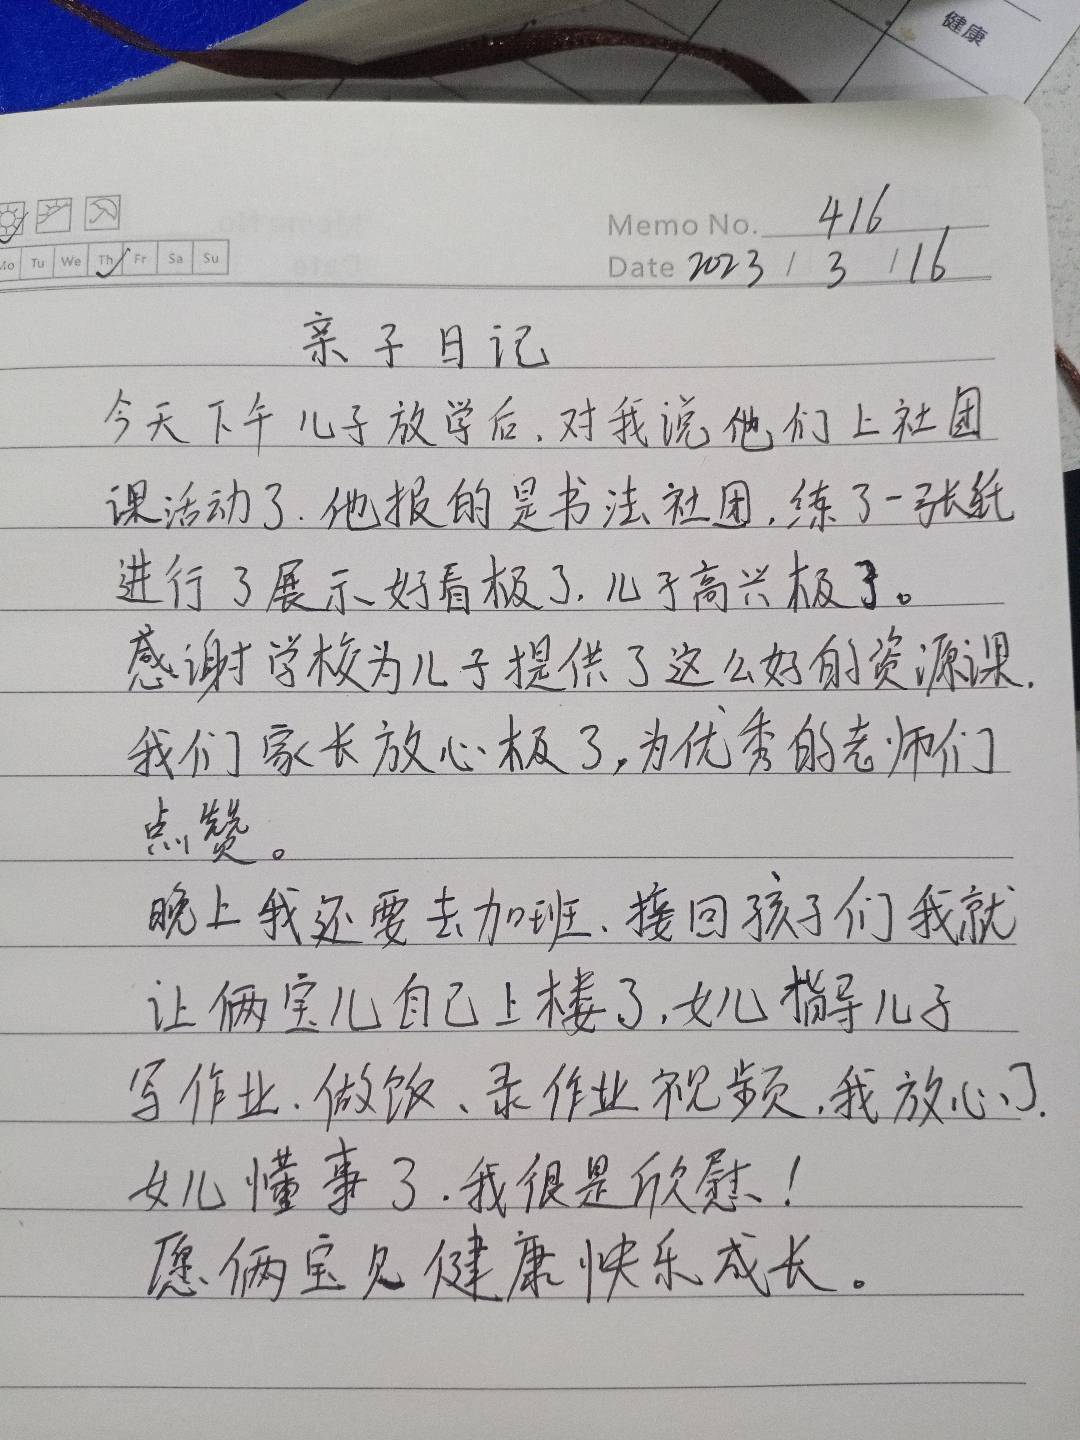 健康
Memo No. 416
Mo Tu We Th Fr Sa Su
Date 2023 / 3 / 16
亲子日记
今天下午儿子放学后,对我说他们上社团
课活动了.他报的是书法社团,练了一张纸
进行了展示、好看极了,儿子高兴极了。
感谢学校为儿子提供了这么好的资源课.
我们家长放心极了,为优秀的老师们
点赞。
晚上我还要去加班、接回孩子们我就
让俩宝儿自己上楼了,女儿指导儿子
写作业、做饭、录作业视频,我放心了.
女儿懂事了.我很是欣慰!
愿俩宝儿健康快乐成长。